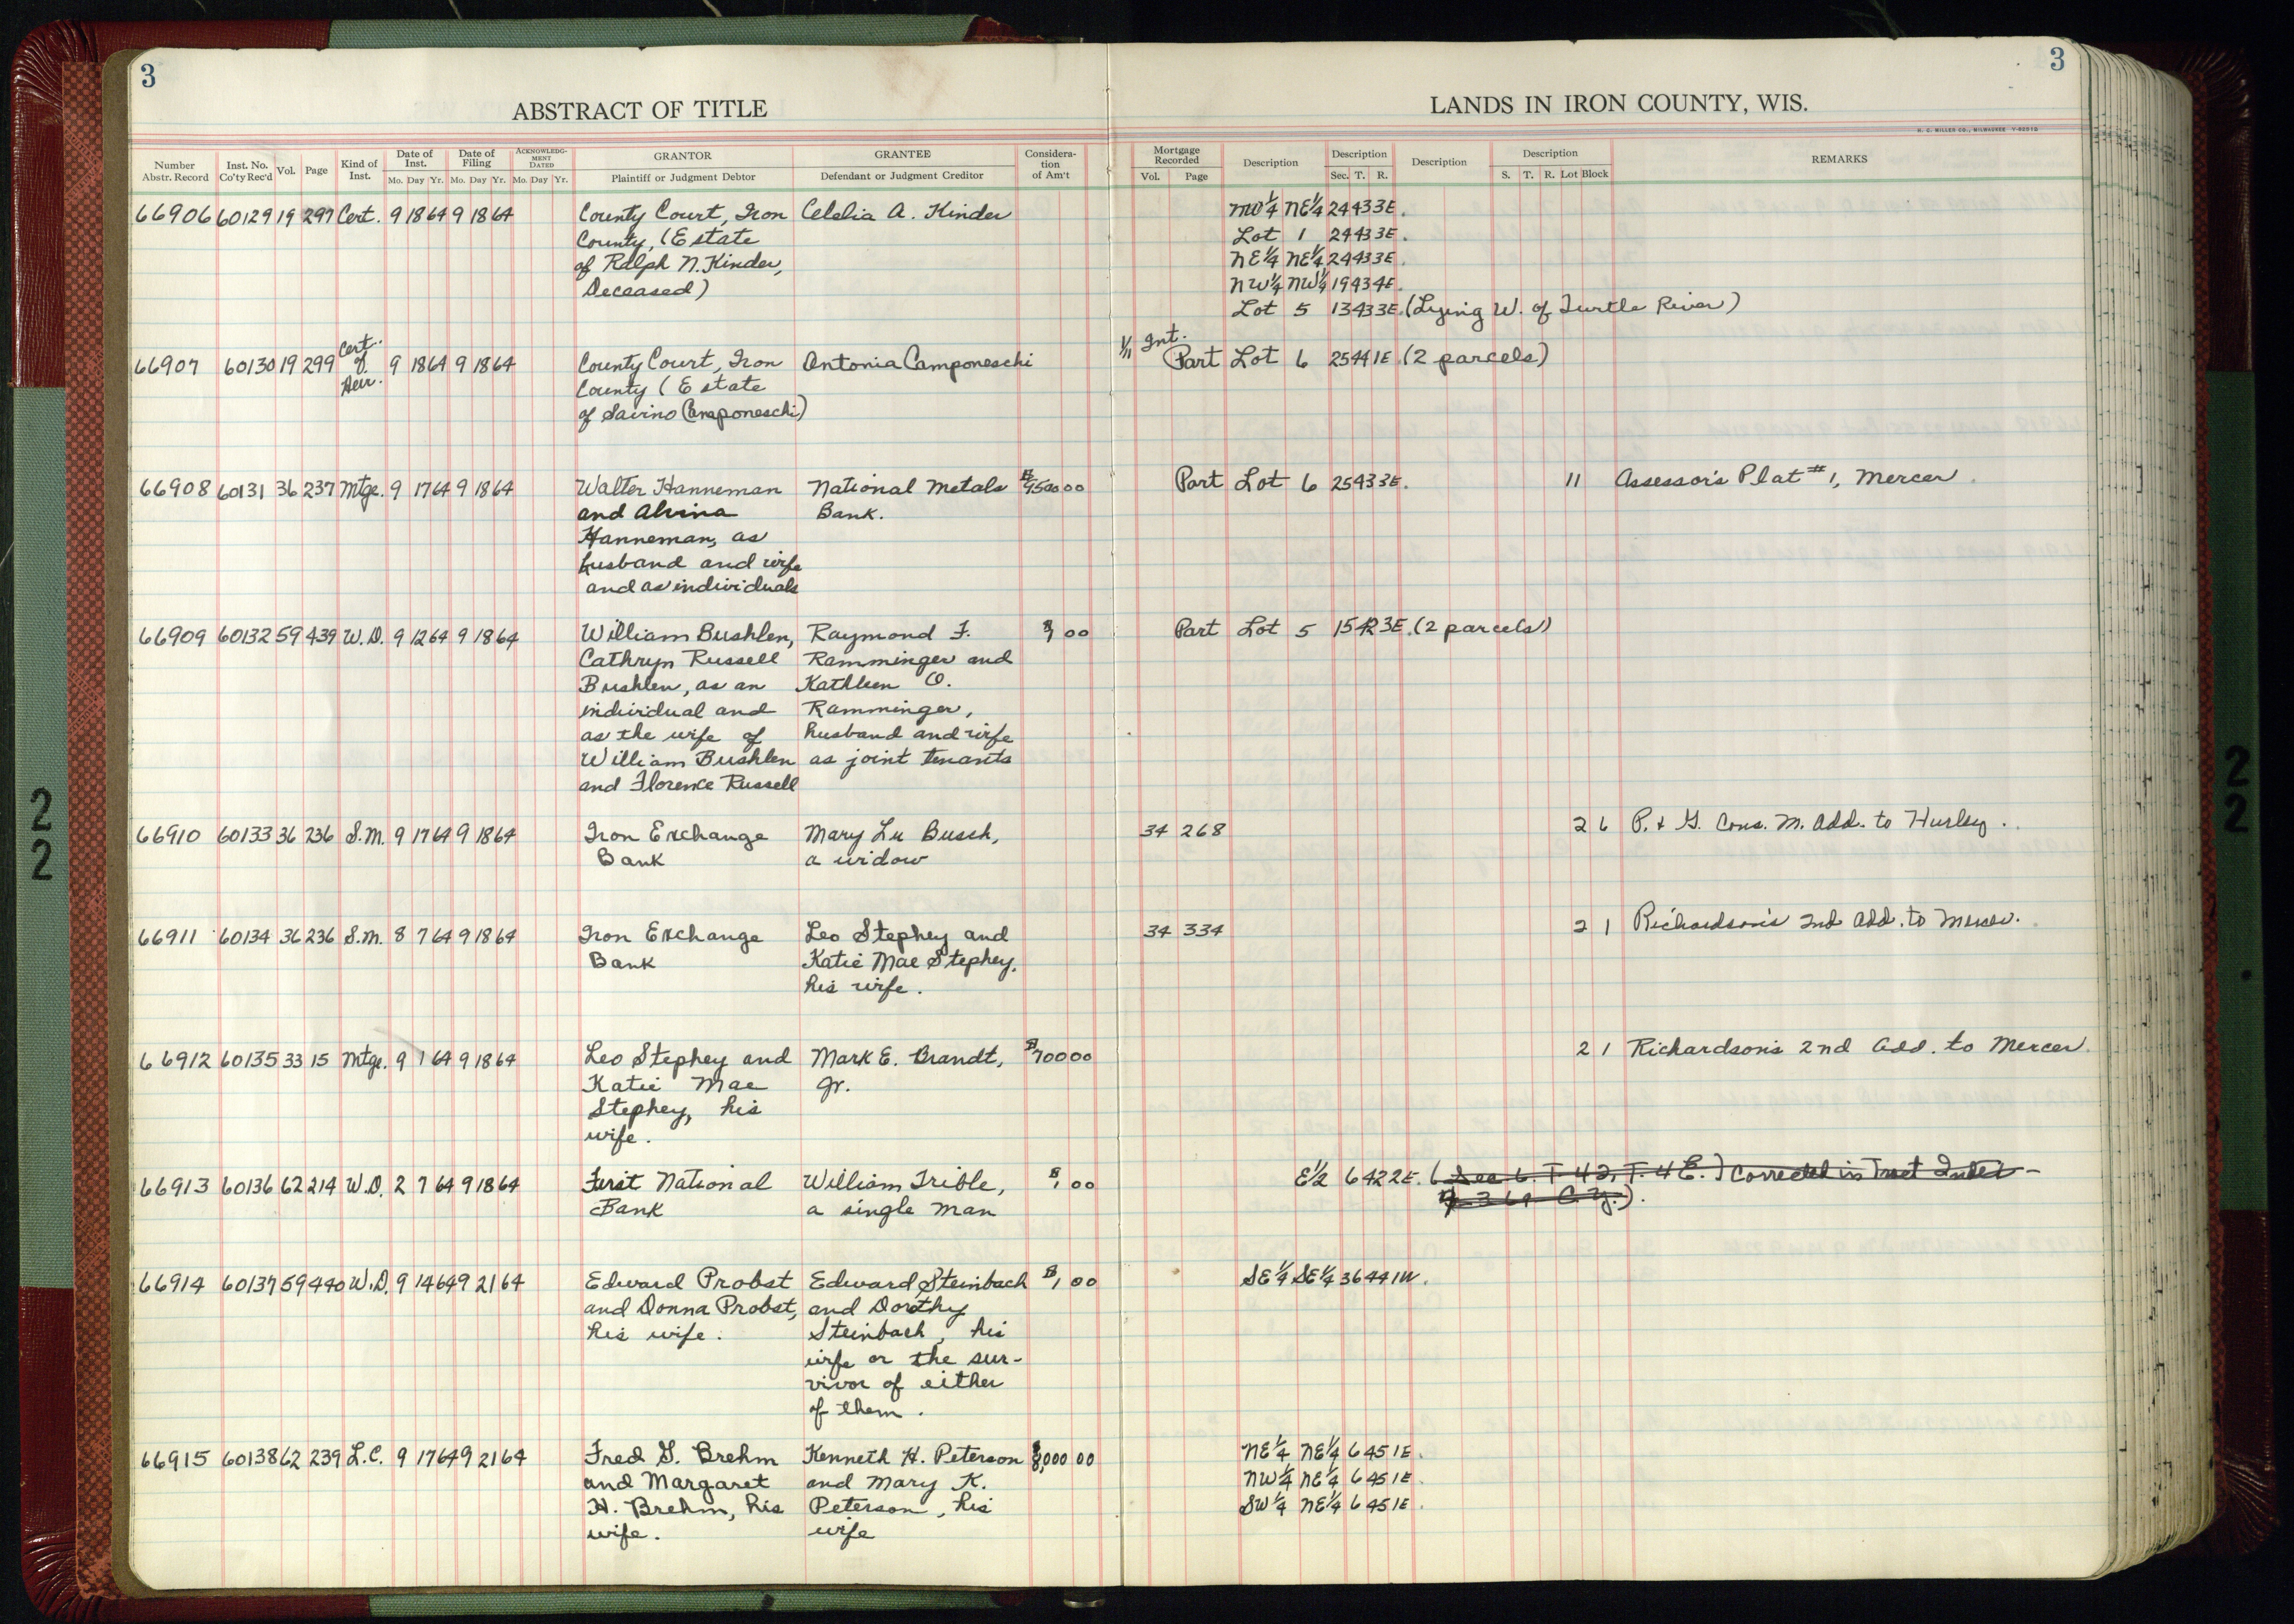 3
3
ABSTRACT OF TITLE
LANDS IN IRON COUNTY, WIS.
H. C. MILLER CO., MILWAUKEE
Number Abstr. Record
Inst. No. Co'ty Rec'd
Vol.
Page
Kind of Inst.
Date of Inst.
Mo. Day Yr.
Date of Filing
Mo. Day Yr.
ACKNOWLEDGMENT DATED
Mo. Day Yr.
GRANTOR
Plaintiff or Judgment Debtor
GRANTEE
Defendant or Judgment Creditor
Consideration of Am't
Mortgage Recorded
Vol. Page
Description
Description
Sec. T. R.
Description
Description
S. T. R. Lot Block
REMARKS
66906 60129 19 297 Cert. 9 18 64 9 18 64 County Court, Iron Celelia A. Kinder NW¼ NE¼ 24 43 3E.
County, (Estate Lot 1 24 43 3E.
of Ralph N. Kinder, NE¼ NE¼ 24 43 3E.
Deceased) NW¼ NW¼ 19 43 4E.
Lot 5 13 43 3E. (Lying W. of Turtle River)
66907 60130 19 299 Cert. of 9 18 64 9 18 64 County Court, Iron Antonia Camponeschi 1/11 Int. Part Lot 6 25 44 1E (2 parcels)
County (Estate
of Savino Camponeschi)
66908 60131 36 237 Mtge. 9 17 64 9 18 64 Walter Hanneman National Metals $9500 00 Part Lot 6 25 43 3E. 11 Assessor's Plat #1, Mercer.
and Alvina Bank.
Hanneman, as
husband and wife
and as individuals
66909 60132 59 439 W.D. 9 12 64 9 18 64 William Bushlen, Raymond F. $1 00 Part Lot 5 15 42 3E. (2 parcels)
Cathryn Russell Ramminger and
Bushlen, as an Kathleen O.
individual and Ramminger,
as the wife of husband and wife
William Bushlen as joint tenants
and Florence Russell
66910 60133 36 236 S.M. 9 17 64 9 18 64 Iron Exchange Mary Lu Busch, 34 268 2 6 P. & G. Cons. M. Add. to Hurley.
Bank a widow
66911 60134 36 236 S.M. 8 7 64 9 18 64 Iron Exchange Leo Stephey and 34 334 2 1 Richardson's 2nd Add. to Mercer.
Bank Katie Mae Stephey,
his wife.
66912 60135 33 15 Mtge. 9 1 64 9 18 64 Leo Stephey and Mark E. Brandt, $700 00 2 1 Richardson's 2nd Add. to Mercer.
Katie Mae Jr.
Stephey, his
wife.
66913 60136 62 214 W.D. 2 7 64 9 18 64 First National William Trible, $1 00 E½ 6 42 2E. (Sec 6. T 42, T. 4 E.) Corrected in Tract Index-
Bank a single man
66914 60137 59 440 W.D. 9 14 64 9 21 64 Edward Probst Edward Steinbach $1 00 SE¼ SE¼ 36 44 1W.
and Donna Probst, and Dorothy
his wife. Steinbach, his
wife or the sur-
vivor of either
of them.
66915 60138 62 239 L.C. 9 17 64 9 21 64 Fred G. Brehm Kenneth H. Peterson $8,000 00 NE¼ NE¼ 6 45 1E.
and Margaret and Mary K. NW¼ NE¼ 6 45 1E.
H. Brehm, his Peterson, his SW¼ NE¼ 6 45 1E.
wife. wife
22
22